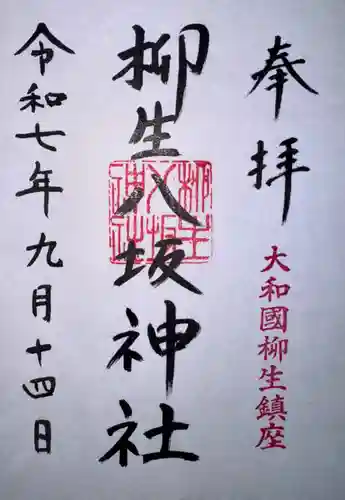 奉拝
大和國柳生鎮座
柳生八坂神社
柳生八坂神社
令和七年九月十四日